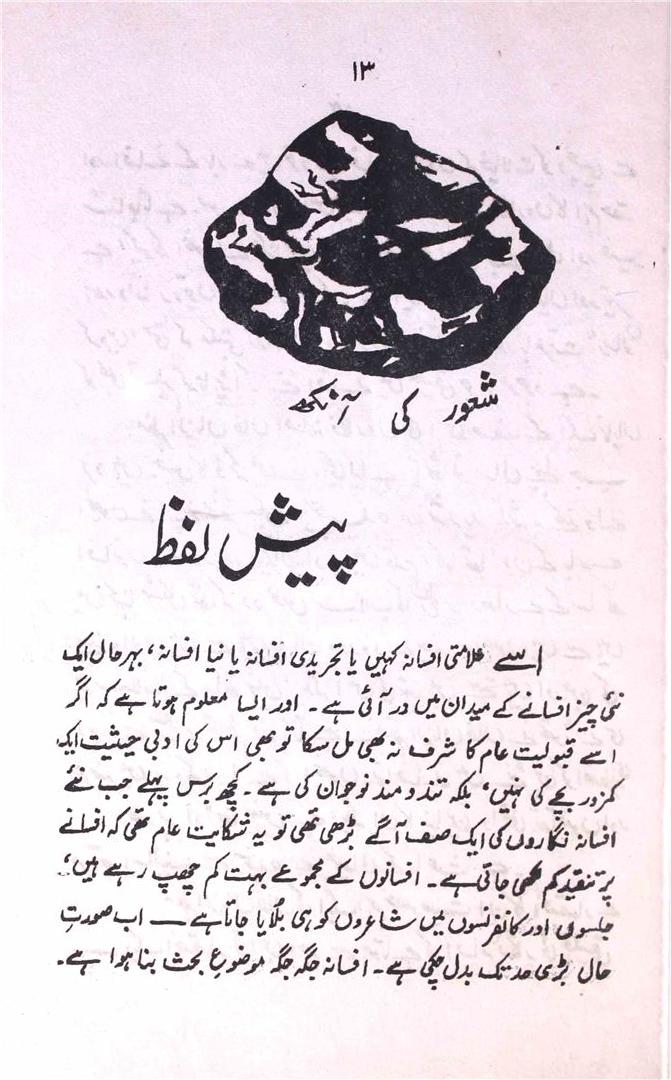 ۱۳
شعور کی آنکھ
پیش لفظ
اسے علامتی افسانہ کہیں یا تجریدی افسانہ یا نیا افسانہ، بہرحال ایک
نئی چیز افسانے کے میدان میں در آئی ہے۔ اور ایسا معلوم ہوتا ہے کہ اگر
اسے قبولیت عام کا شرف نہ بھی مل سکا تو بھی اس کی ادبی حیثیت ایک
کمزور بچے کی نہیں، بلکہ تند و مند نوجوان کی ہے۔ کچھ برس پہلے جب نئے
افسانہ نگاروں کی ایک صف آگے بڑھی تھی تو یہ شکایت عام تھی کہ افسانے
پر تنقید کم لکھی جاتی ہے۔ افسانوں کے مجموعے بہت کم چھپ رہے ہیں،
جلسوں اور کانفرنسوں میں شاعروں کو ہی بلایا جاتا ہے — اب صورتِ
حال بڑی حد تک بدل چکی ہے۔ افسانہ جگہ جگہ موضوعِ بحث بنا ہوا ہے۔